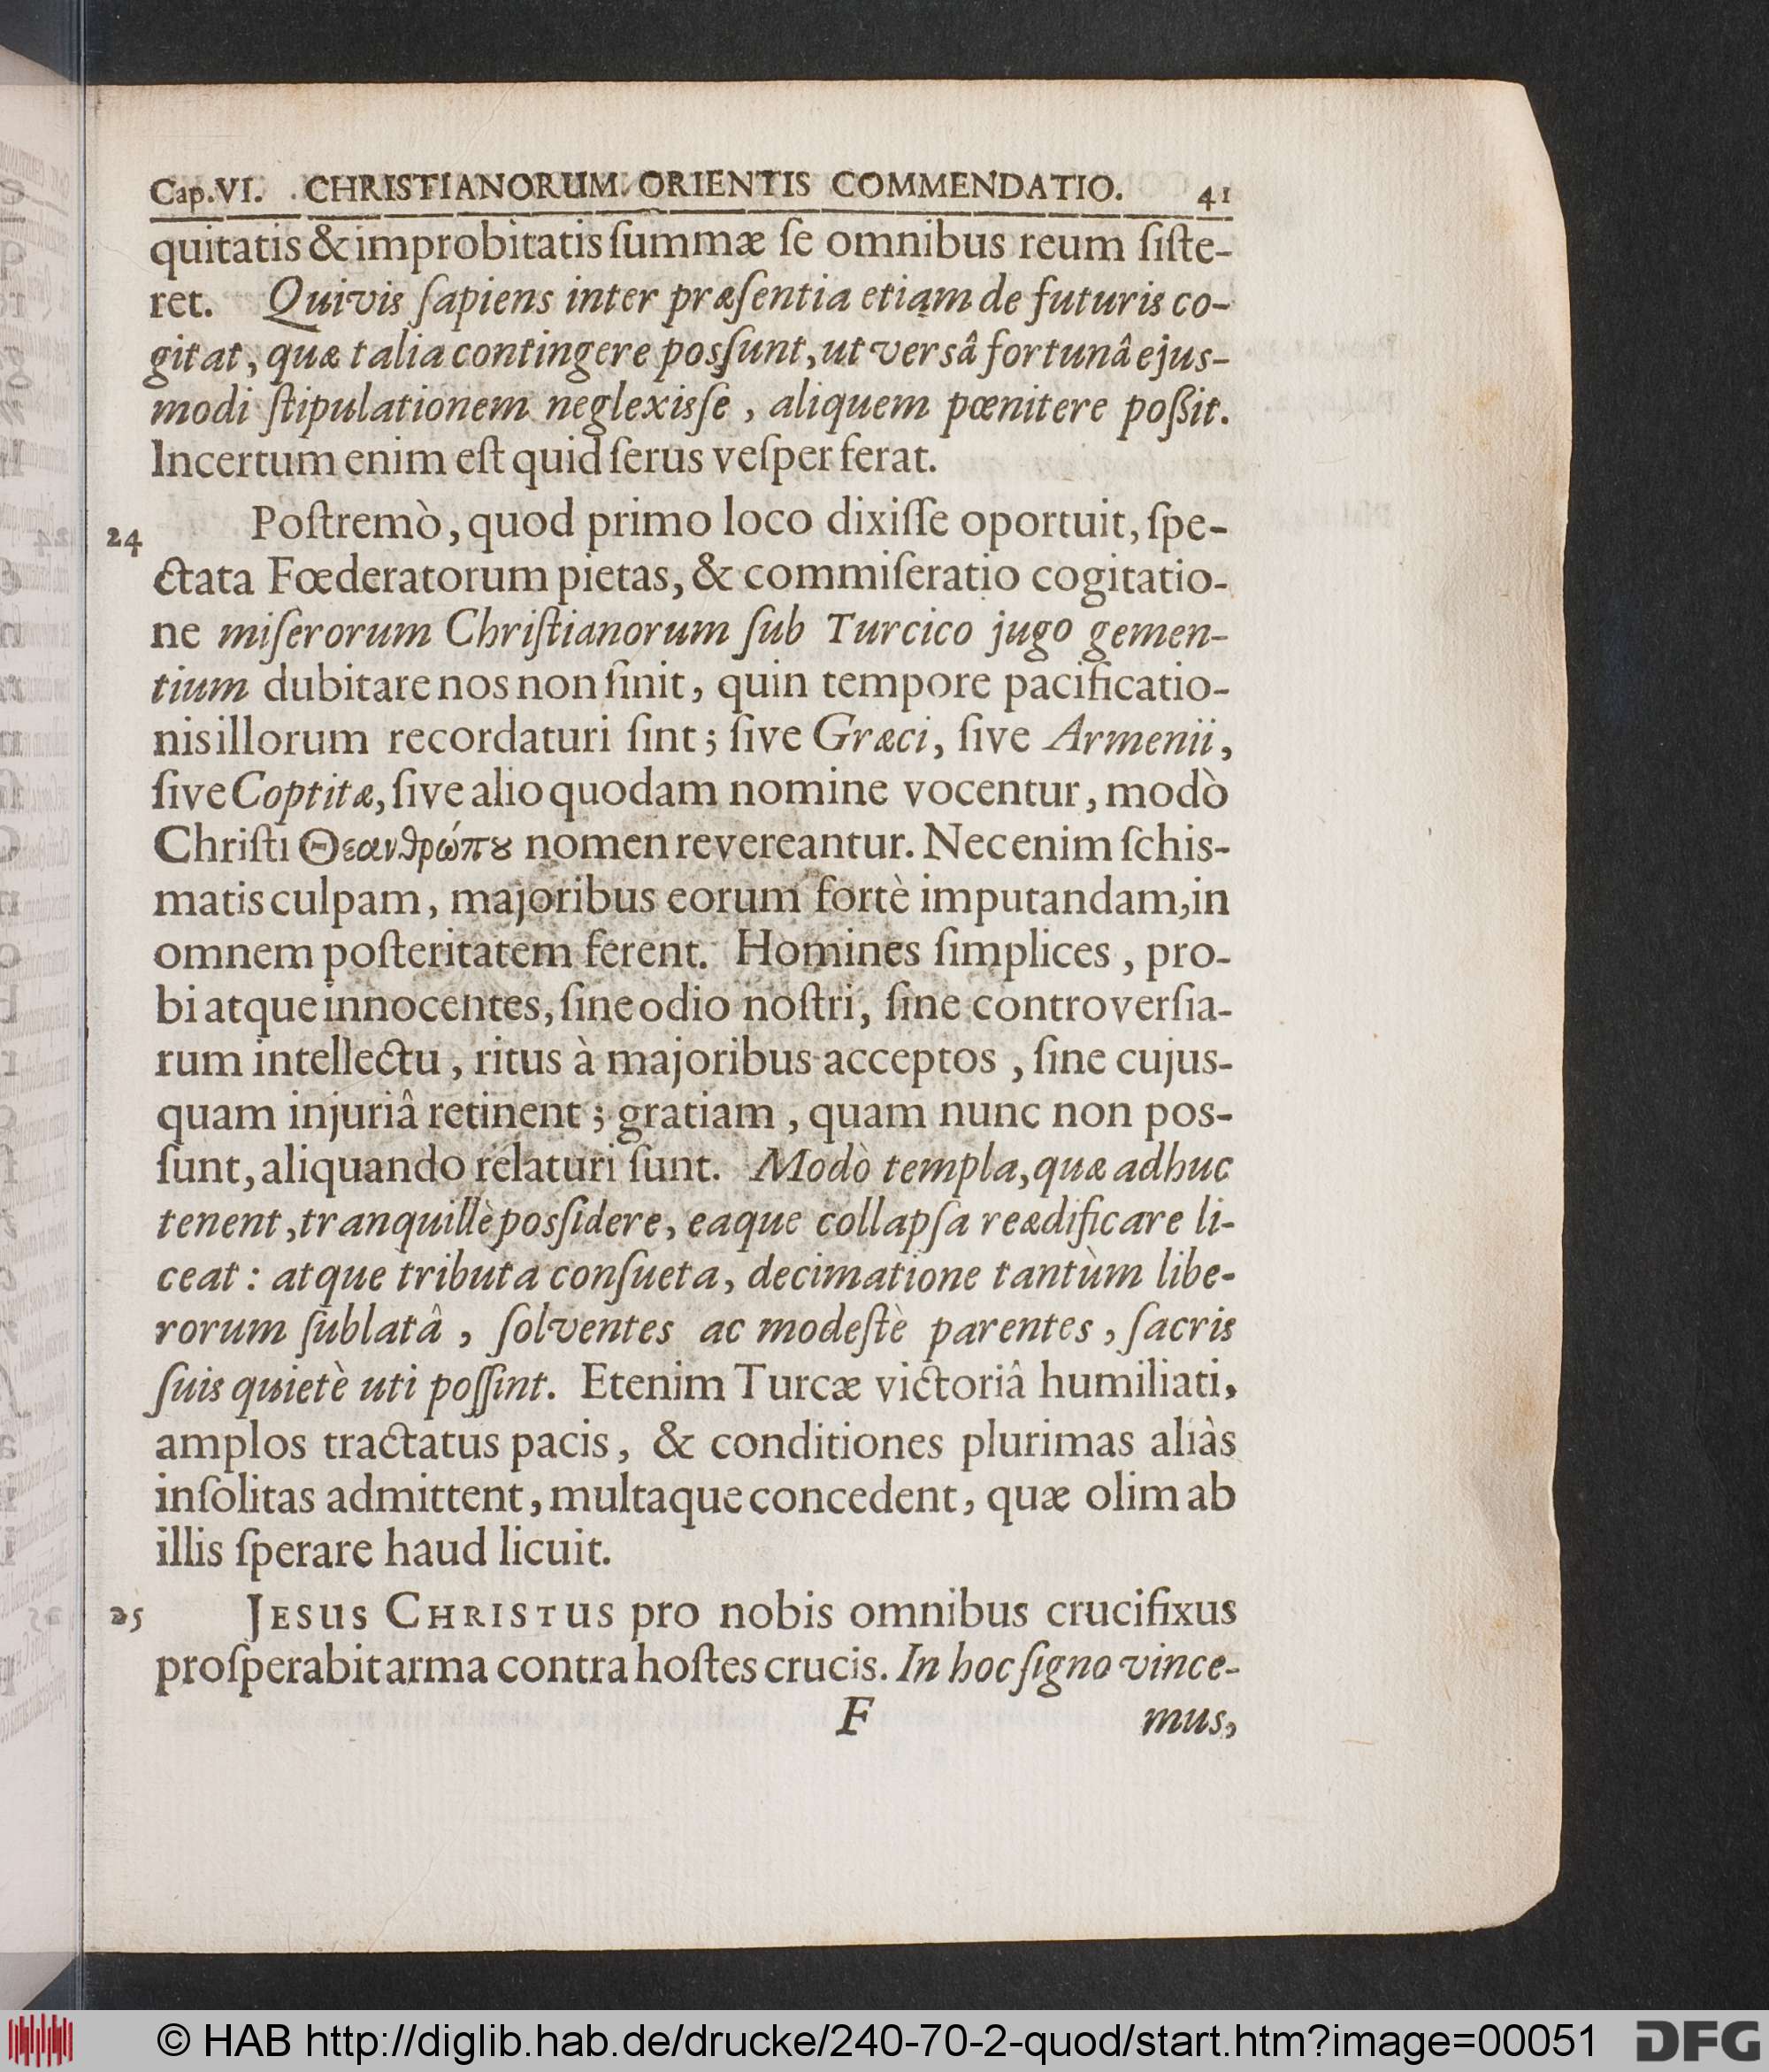 Cap.VI. CHRISTIANORUM ORIENTIS COMMENDATIO. 41
quitatis & improbitatis ſummæ ſe omnibus reum ſiſte-
ret. Quivis ſapiens inter præſentia etiam de futuris co-
gitat, quæ talia contingere posſunt, ut versâ fortunâ ejus-
modi ſtipulationem neglexisſe, aliquem pœnitere poßit.
Incertum enim eſt quid ſerus veſper ferat.
24 Poſtremò, quod primo loco dixiſſe oportuit, ſpe-
ctata Fœderatorum pietas, & commiſeratio cogitatio-
ne miſerorum Chriſtianorum ſub Turcico jugo gemen-
tium dubitare nos non ſinit, quin tempore pacificatio-
nis illorum recordaturi ſint; ſive Græci, ſive Armenii,
ſive Coptitæ, ſive alio quodam nomine vocentur, modò
Chriſti Θεανθρώπȣ nomen revereantur. Nec enim ſchis-
matis culpam, majoribus eorum fortè imputandam, in
omnem poſteritatem ferent. Homines ſimplices, pro-
bi atque innocentes, ſine odio noſtri, ſine controverſia-
rum intellectu, ritus à majoribus acceptos, ſine cujus-
quam injuriâ retinent; gratiam, quam nunc non pos-
ſunt, aliquando relaturi ſunt. Modò templa, quæ adhuc
tenent, tranquillè posſidere, eaque collapſa reædificare li-
ceat: atque tributa conſueta, decimatione tantùm libe-
rorum ſublatâ, ſolventes ac modeſtè parentes, ſacris
ſuis quietè uti poſſint. Etenim Turcæ victoriâ humiliati,
amplos tractatus pacis, & conditiones plurimas aliàs
inſolitas admittent, multaque concedent, quæ olim ab
illis ſperare haud licuit.
25 JESUS CHRISTUS pro nobis omnibus crucifixus
proſperabit arma contra hoſtes crucis. In hoc ſigno vince-
F mus,
© HAB http://diglib.hab.de/drucke/240-70-2-quod/start.htm?image=00051 DFG